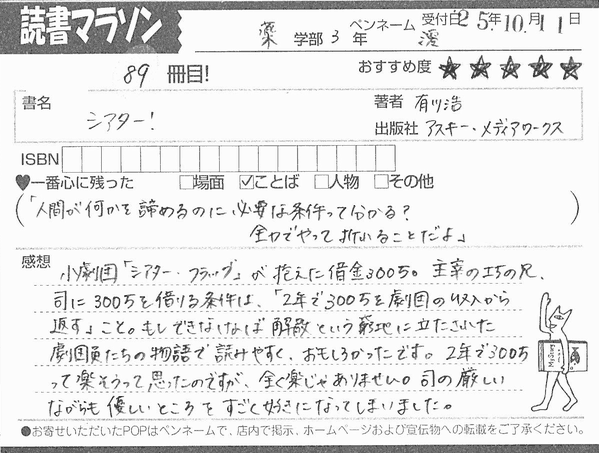 読書マラソン
薬 学部 3 年 ペンネーム 澪 受付日 25年.10月.11日
89 冊目!
おすすめ度 ★★★★★
書名 シアター!
著者 有川浩
出版社 アスキー・メディアワークス
ISBN
♥一番心に残った □場面 ☑ことば □人物 □その他
「人間が何かを諦めるのに必要な条件って分かる?
全力でやって折れることだよ」
感想
小劇団「シアター・フラッグ」が抱えた借金300万。主宰の巧の兄、
司に300万を借りる条件は、「2年で300万を劇団の収入から
返す」こと。もしできなければ解散という窮地に立たされた
劇団員たちの物語で読みやすく、おもしろかったです。2年で300万
って楽そうって思ったのですが、全く楽じゃありません。司の厳しい
ながらも優しいところをすごく好きになってしまいました。
●お寄せいただいたPOPはペンネームで、店内で掲示、ホームページおよび宣伝物への転載をご了承ください。